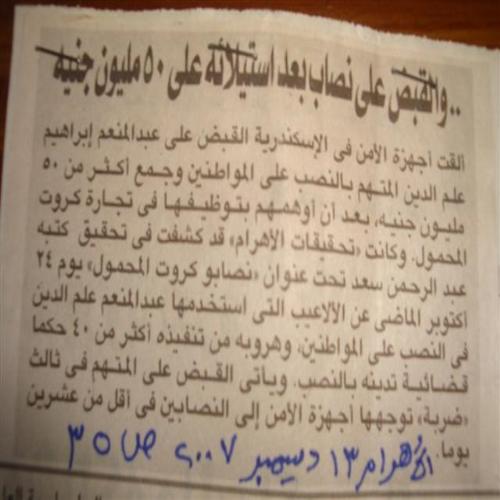 .. والقبض على نصاب بعد استيلائه على ٥٠ مليون جنيه
ألقت أجهزة الأمن فى الإسكندرية القبض على عبدالمنعم إبراهيم
علم الدين المتهم بالنصب على المواطنين وجمع أكثر من ٥٠
مليون جنيه، بعد أن أوهمهم بتوظيفها فى تجارة كروت
المحمول. وكانت «تحقيقات الأهرام» قد كشفت فى تحقيق كتبه
عبد الرحمن سعد تحت عنوان «نصابو كروت المحمول» يوم ٢٤
أكتوبر الماضى عن الألاعيب التى استخدمها عبدالمنعم علم الدين
فى النصب على المواطنين، وهروبه من تنفيذه أكثر من ٤٠ حكما
قضائية تدينه بالنصب. ويأتى القبض على المتهم فى ثالث
«ضربة» توجهها أجهزة الأمن إلى النصابين فى أقل من عشرين
يوما.
الأهرام ١٣ ديسمبر ٢٠٠٧ ص ٣٥